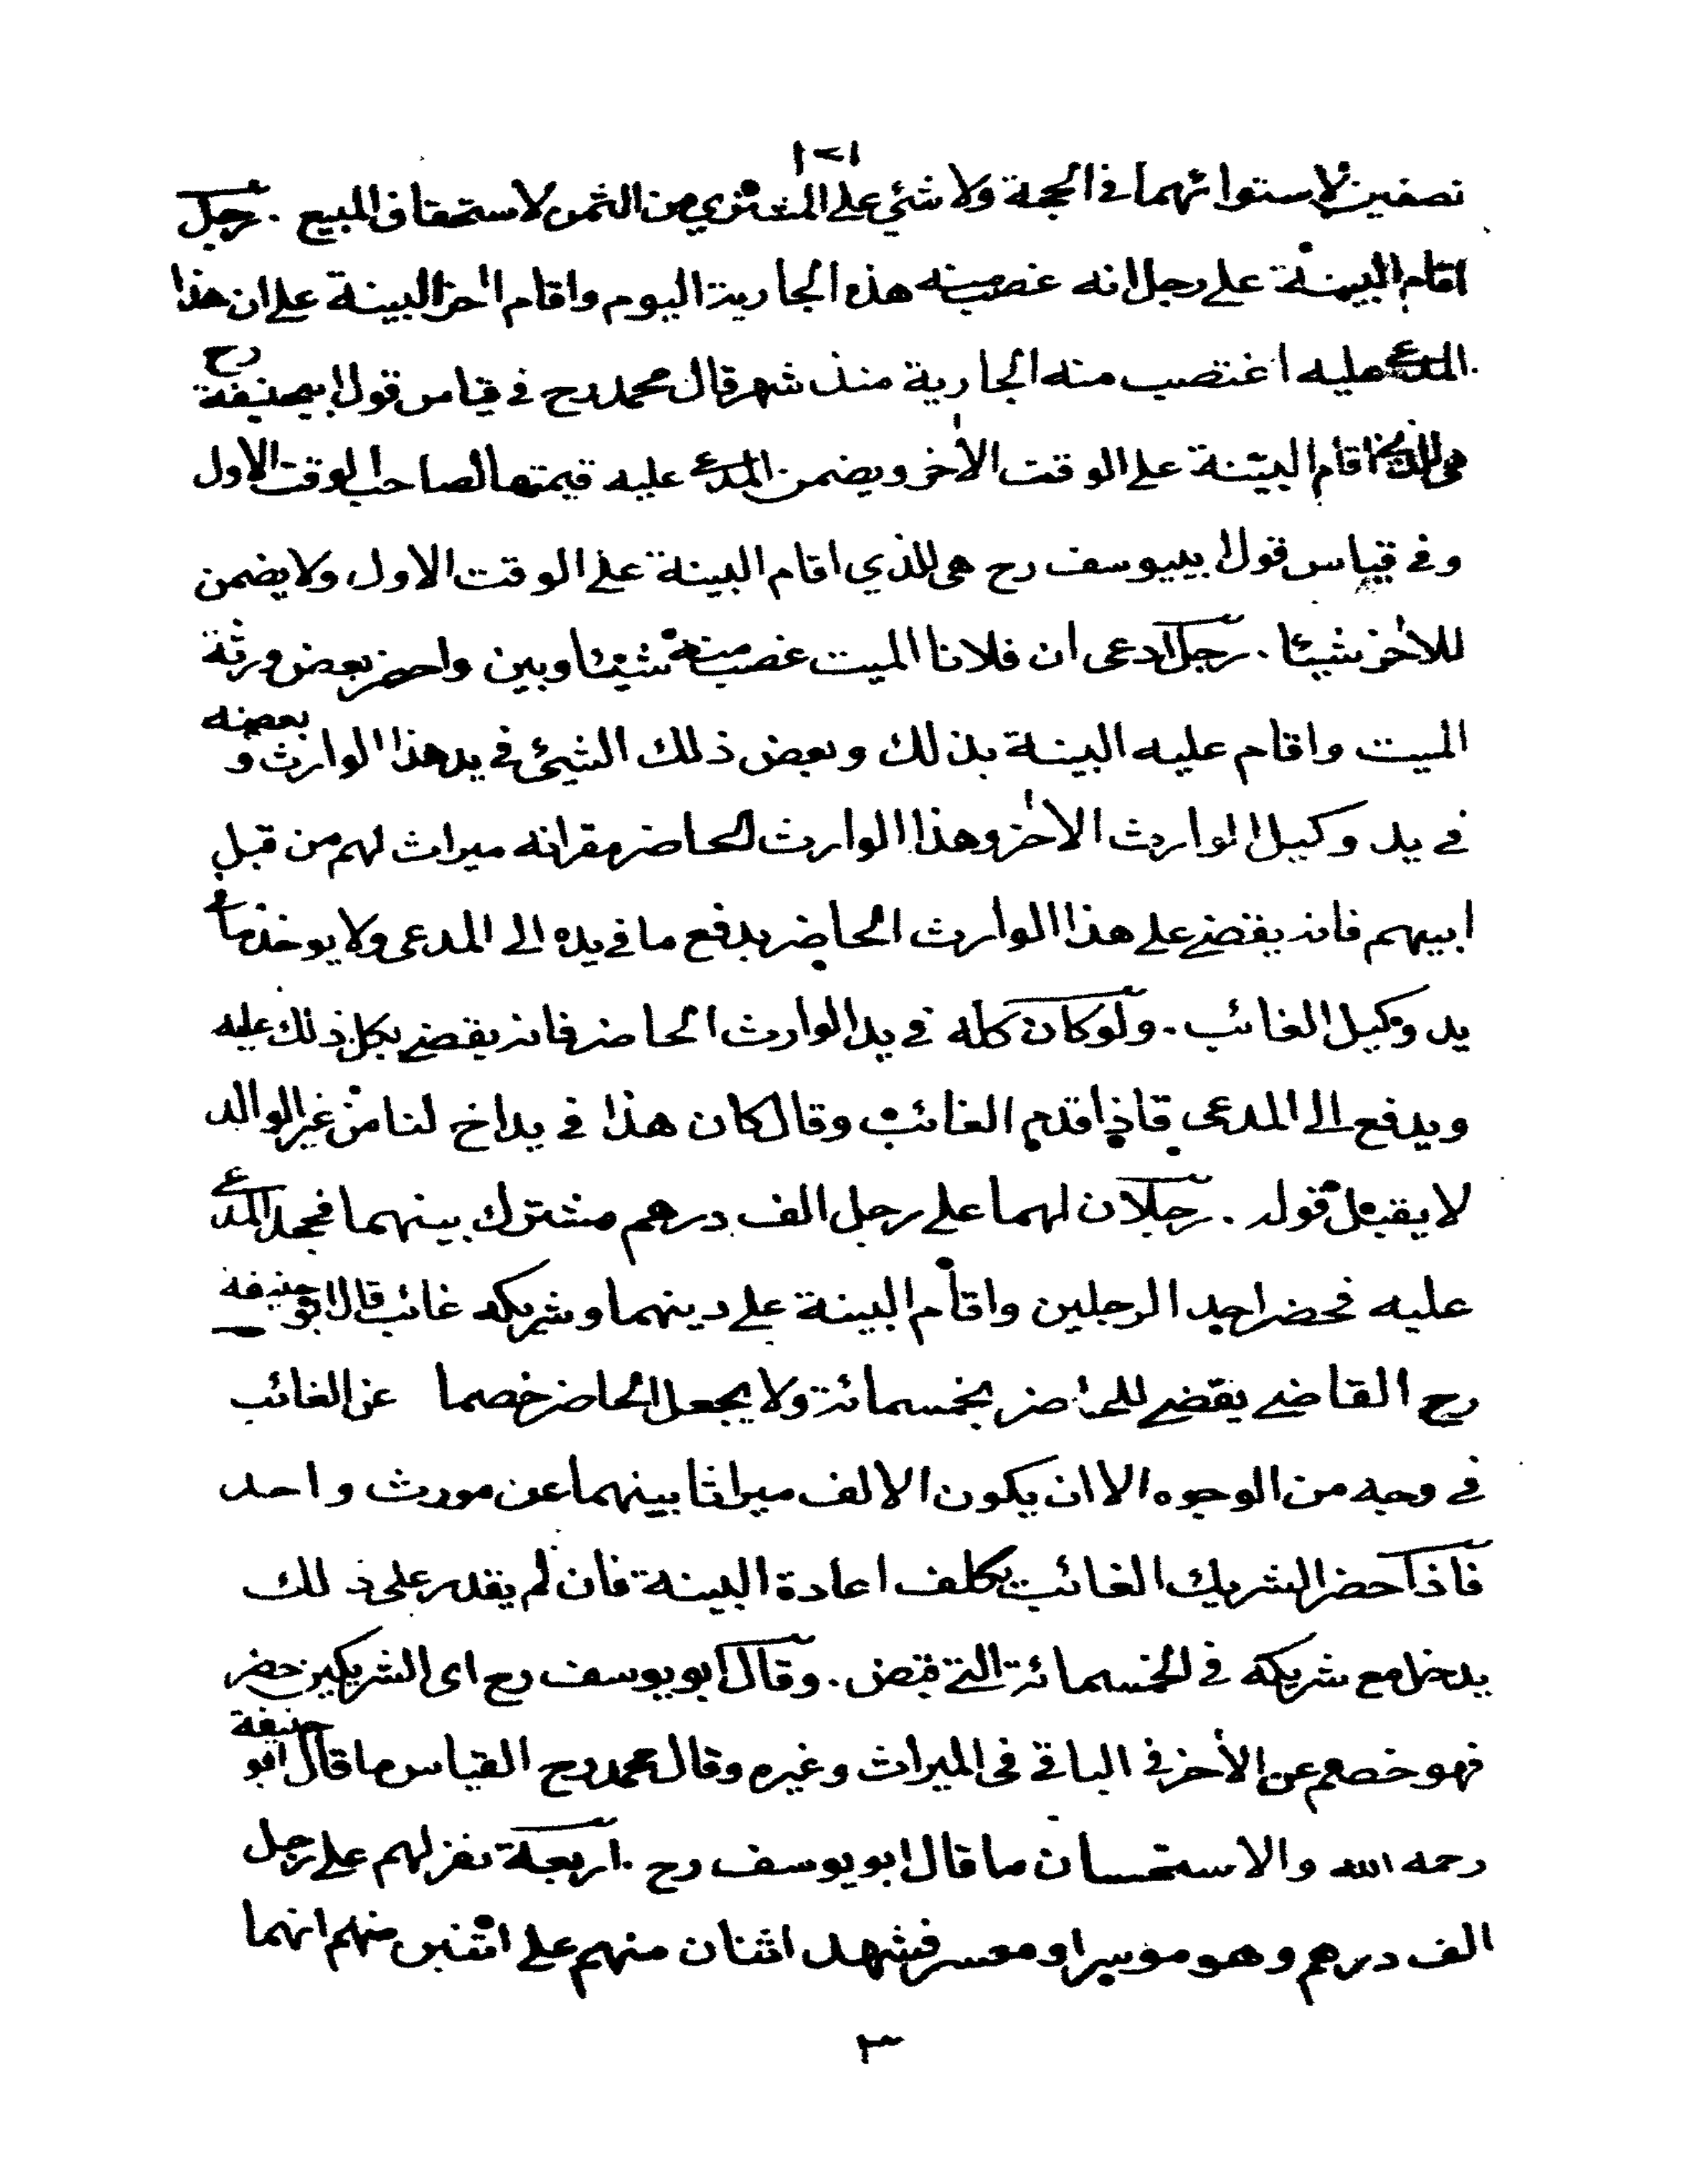 ١٢١
نصفين لاستوائهما في الحجة ولا شئ على المشتري من الثمن لاستحقاق المبيع . رجل
اقام البينة على رجل انه غصب منه هذه الجارية اليوم واقام اخر البينة على ان هذا
المدعى عليه اغتصب منه الجارية منذ شهر قال محمد رح في قياس قول ابيحنيفة رح
هي للذي اقام البينة على الوقت الاخر ويضمن المدعى عليه قيمتها لصاحب الوقت الاول
وفي قياس قول ابييوسف رح هى للذي اقام البينة على الوقت الاول ولا يضمن
للاخر شيئا . رجل ادعى ان فلانا الميت غصب منه شيئا وبين واحضر بعض ورثة
الميت واقام عليه البينة بذلك وبعض ذلك الشيئ في يد هذا الوارث و بعضه
في يد وكيل الوارث الاخر وهذا الوارث الحاضر مقر انه ميراث لهم من قبل
ابيهم فانه يقضى على هذا الوارث الحاضر بدفع ما في يده الى المدعى ولا يوخذ ما في
يد وكيل الغائب . ولو كان كله في يد الوارث الحاضر فانه يقضى بكل ذلك عليه
ويدفع الى المدعى فاذا قدم الغائب وقال كان هذا في يد اخ لنا من غير الوالد
لا يقبل قوله . رجلان لهما على رجل الف درهم مشترك بينهما فجحد المدعى
عليه فحضر احد الرجلين واقام البينة على دينهما وشريكه غائب قال ابو حنيفة
رح القاضي يقضي للحاضر بخمسمائة ولا يجعل الحاضر خصما عن الغائب
في وجه من الوجوه الا ان يكون الالف ميراثا بينهما عن مورث واحد
فاذا حضر الشريك الغائب يكلف اعادة البينة فان لم يقدر على ذلك
يدخل مع شريكه في الخمسمائة التي قبض . وقال ابو يوسف رح اى الشريكين حضر
فهو خصم عن الأخر في الباقي في الميراث وغيره وقال محمد رح القياس ما قال ابو حنيفة
رحمه الله والاستحسان ما قال ابو يوسف رح . اربعة نفر لهم على رجل
الف درهم وهو موسر او معسر فشهد اثنان منهم على اثنين منهم انهما